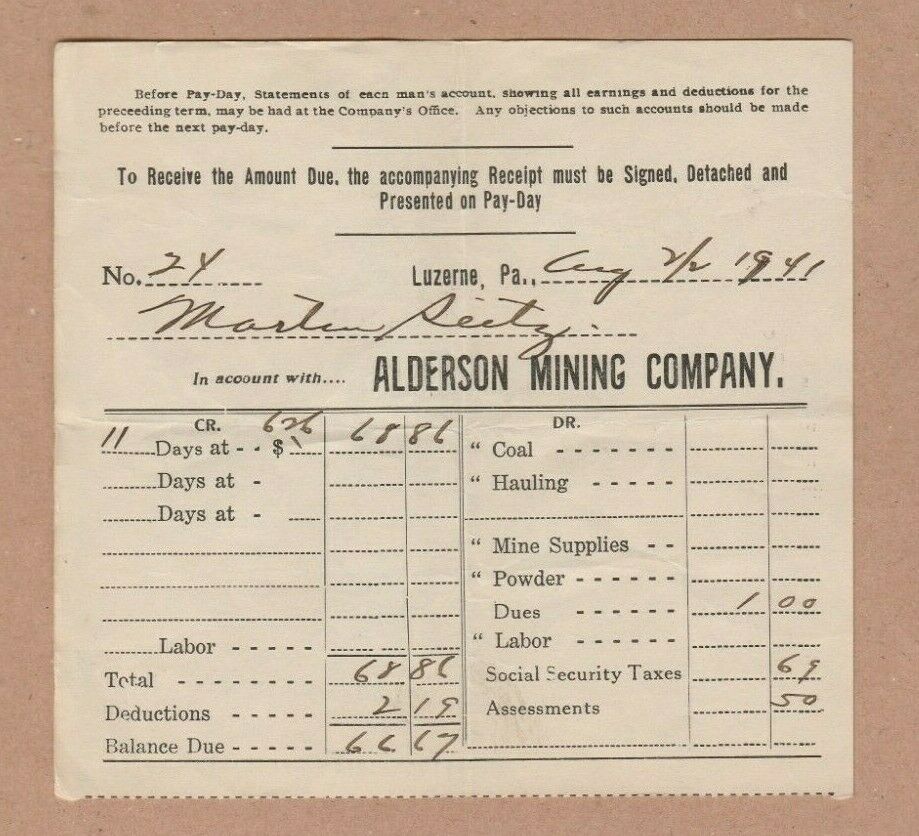 Before Pay-Day, Statements of each man's account, showing all earnings and deductions for the
preceeding term, may be had at the Company's Office. Any objections to such accounts should be made
before the next pay-day.
To Receive the Amount Due, the accompanying Receipt must be Signed, Detached and
Presented on Pay-Day
No. 24 Luzerne, Pa., Aug 2/2 1941
Martin Seitz.
In account with.... ALDERSON MINING COMPANY.
CR. DR.
11 Days at - - $ 626 68 86 " Coal
Days at - " Hauling
Days at -
" Mine Supplies
" Powder
Dues 1 00
Labor " Labor
Total 68 86 Social Security Taxes 69
Deductions 2 19 Assessments 50
Balance Due 66 67